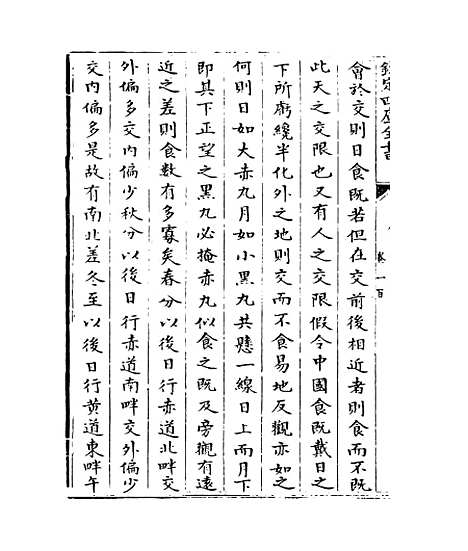 欽定四庫全書
卷一百
會於交則日食既若但在交前後相近者則食而不既
此天之交限也又有人之交限假令中國食既戴日之
下所虧纔半化外之地則交而不食易地反觀亦如之
何則日如大赤丸月如小黑丸共懸一線日上而月下
即其下正望之黑丸必掩赤丸似食之既及旁觀有遠
近之差則食數有多寡矣春分以後日行赤道北畔交
外偏多交内偏少秋分以後日行赤道南畔交外偏少
交内偏多是故有南北差冬至以後日行黄道東畔午